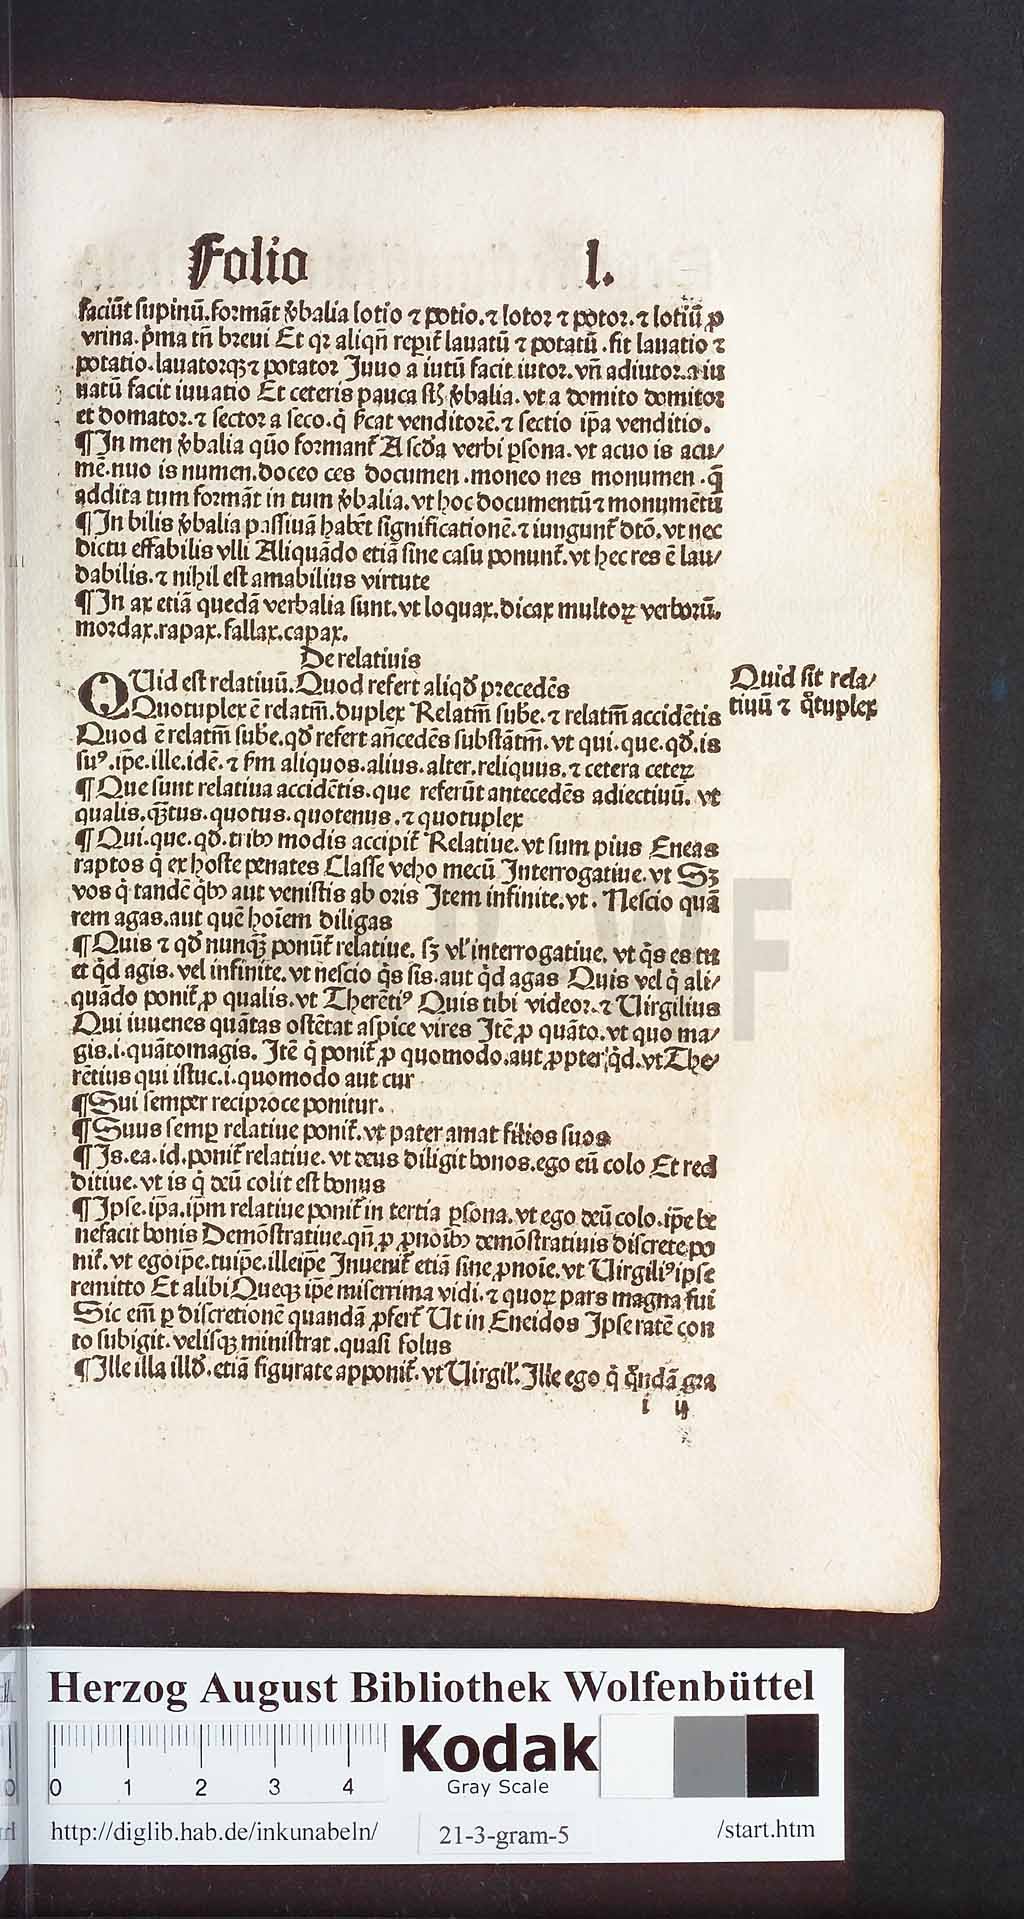 Folio l.
faciūt supinū. formāt v̓balia lotio ⁊ potio. ⁊ lotor ⁊ potor. ⁊ lotiū ꝓ
vrina. p̓ma tn̄ breui Et qꝛ aliqn̄ reꝑit̄ lauatū ⁊ potatū . fit lauatio ⁊
potatio. lauatorqꝫ ⁊ potator Juuo a iutū facit iutor. vn̄ adiutor. a iu
uatū facit iuuatio Et ceteris pauca st̄ v̓balia. vt a domito domitor
et domator. ⁊ sector a seco. q̓ venditorē. ⁊ sectio ip̄a venditio.
¶ In men v̓balia quō formant̄ A scd̓a verbi ꝑsona. vt acuo is acu/
mē. nuo is numen. doceo ces documen . moneo nes monumen . q̄
addita tum formāt in tum v̓balia. vt hoc documentū ⁊ monumētū
¶ In bilis v̓balia passiuā habēt significationē. ⁊ iungunt̄ dtō. vt nec
dictu effabilis vlli Aliquādo etiā sine casu ponunt̄. vt hec res ē lau/
dabilis. ⁊ nihil est amabilius virtute
¶ In ax etiā quedā verbalia sunt. vt loquax. dicax multoꝝ verborū.
mordax. rapax. fallax. capax.
De relatiuis
QUid est relatiuū. Quod refert aliqd̓ precedēs
Quotuplex ē relatm̄. duplex Relatm̄ sube̓. ⁊ relatm̄ accidētis
Quod ē relatm̄ sube̓. qd̓ refert an̄cedēs substātm̄. vt qui. que. qd̓. is
suꝰ. ip̄e. ille. idē. ⁊ fm̄ aliquos. alius. alter. reliquus. ⁊ cetera ceteꝝ
¶ Que sunt relatiua accidētis. que referūt antecedēs adiectiuū. vt
qualis. q̄tus. quotus. quotenus. ⁊ quotuplex
¶ Qui. que. qd̓. tribꝰ modis accipit̄ Relatiue. vt sum pius Eneas
raptos q̓ ex hoste penates Classe veho mecū Interrogatiue. vt Sꝫ
vos q̓ tandē q̓bꝰ aut venistis ab oris Item infinite. vt . Nescio quā
rem agas. aut quē hoīem diligas
¶ Quis ⁊ qd̓ nunqꝫ ponūt̄ relatiue. sꝫ vl̓ interrogatiue. vt q̓s es tu
et q̓d agis. vel infinite. vt nescio q̓s sis. aut q̓d agas Quis vel q̓ ali/
quādo ponit̄ ꝓ qualis. vt Therētiꝰ Quis tibi videor. ⁊ Uirgilius
Qui iuuenes quātas ostētat aspice vires Itē ꝓ quāto. vt quo ma/
gis. i. quātomagis. Itē q̓ ponit̄ ꝓ quomodo. aut ꝓpter q̓d. vt The/
rētius qui istuc. i. quomodo aut cur
¶ Sui semper reciproce ponitur.
¶ Suus semꝑ relatiue ponit̄. vt pater amat filios suos
¶ Is. ea. id. ponit̄ relatiue. vt deus diligit bonos. ego eū colo Et red
ditiue. vt is q̓ deū colit est bonus
¶ Ipse. ip̄a. ip̄m relatiue ponit̄ in tertia ꝑsona. vt ego deū colo. ip̄e be
nefacit bonis Demōstratiue. qn̄ ꝑ ꝓnoībꝰ demōstratiuis discrete po
nit̄. vt egoip̄e. tuip̄e. illeip̄e Inuenit̄ etiā sine ꝓnoīe. vt Uirgiliꝰ ipse
remitto Et alibi Queqꝫ ip̄e miserrima vidi. ⁊ quoꝝ pars magna fui
Sic em̄ ꝑ discretionē quandā ꝓfert̄ Ut in Eneidos Ipse ratē con
to subigit. velisqꝫ ministrat . quasi solus
¶ Ille illa illd̓. etiā figurate apponit̄. vt Uirgil̓. Ille ego q̓ q̊ndā gra
i ij
Quid sit rela/
tiuū ⁊ q̊tuplex
HAB WF
Herzog August Bibliothek Wolfenbüttel
0 1 2 3 4
Kodak
Gray Scale
http://diglib.hab.de/inkunabeln/ 21-3-gram-5 /start.htm